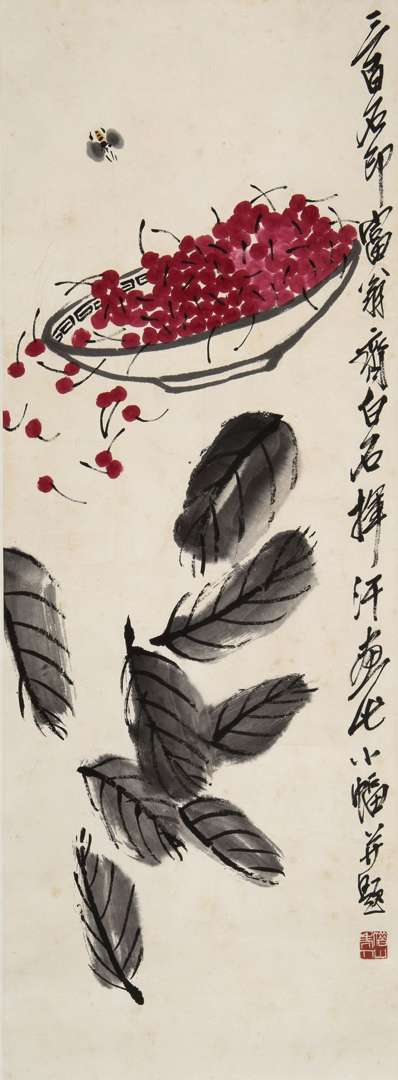 三百石印富翁齊白石揮汗画此小幅并題